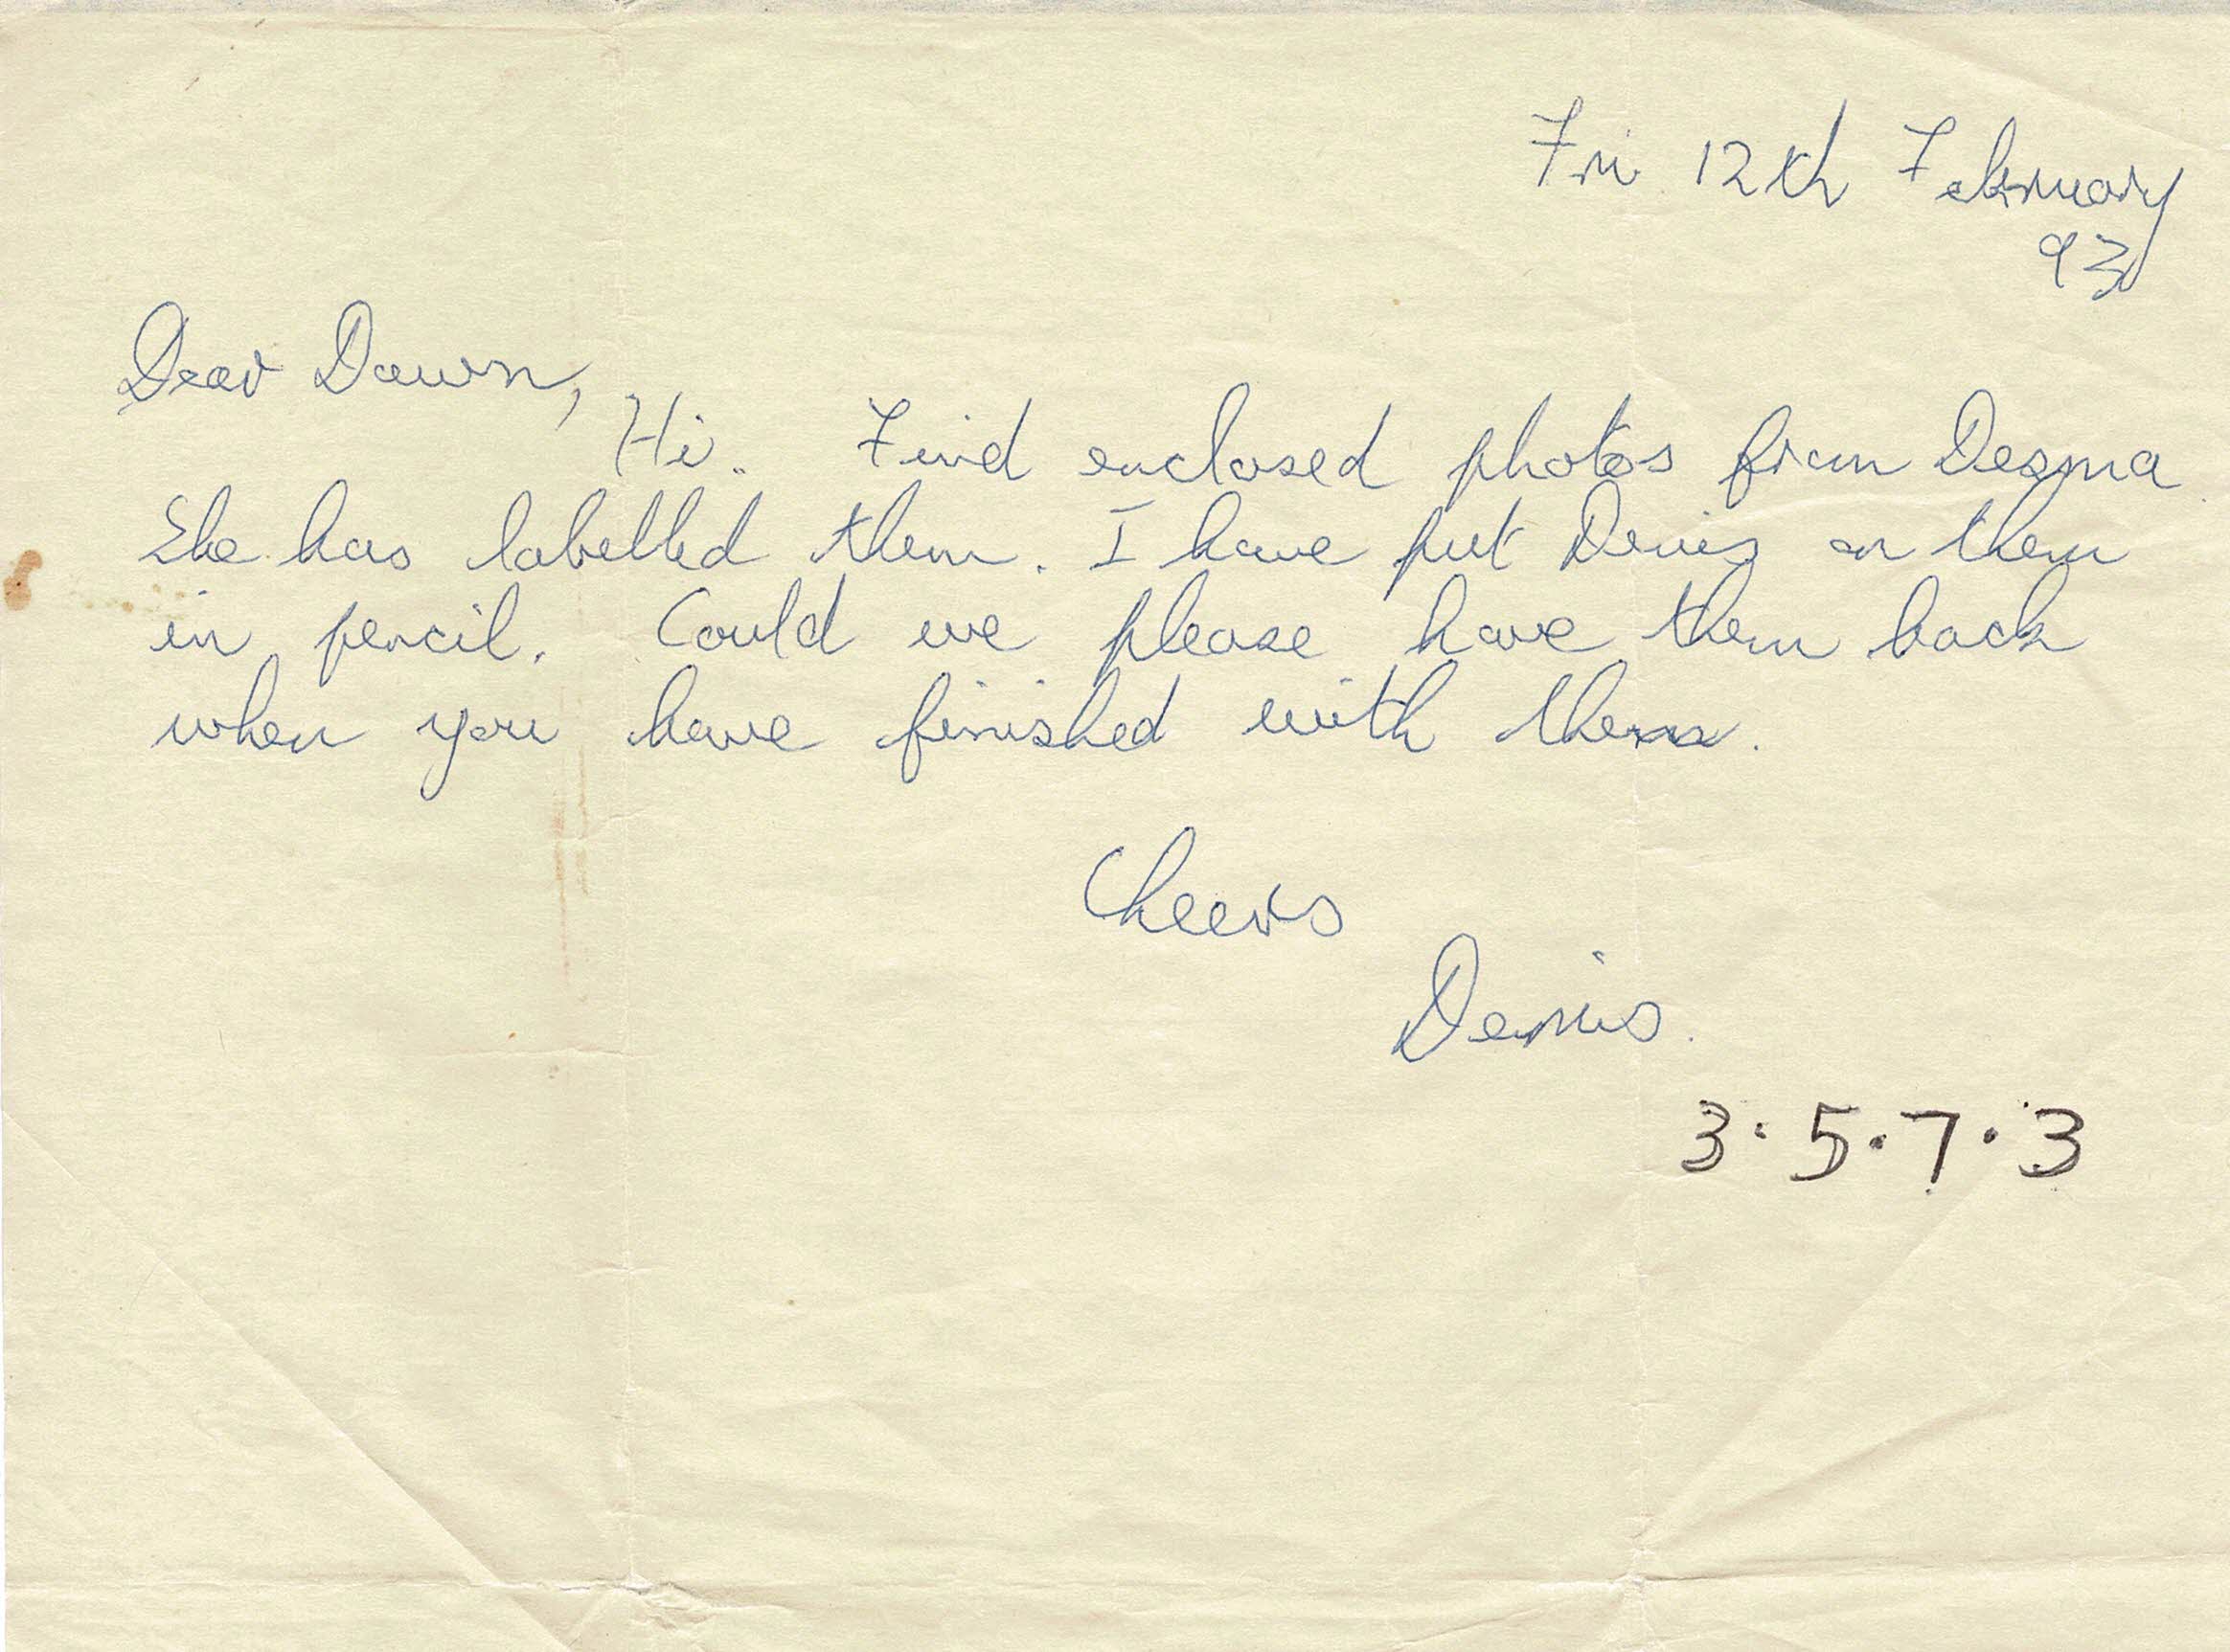 Fri 12th February
93
Dear Dawn,
Hi. Find enclosed photos from Desma
She has labelled them. I have put Denis on them
in pencil. Could we please have them back
when you have finished with them.
Cheers
Denis.
3.5.7.3